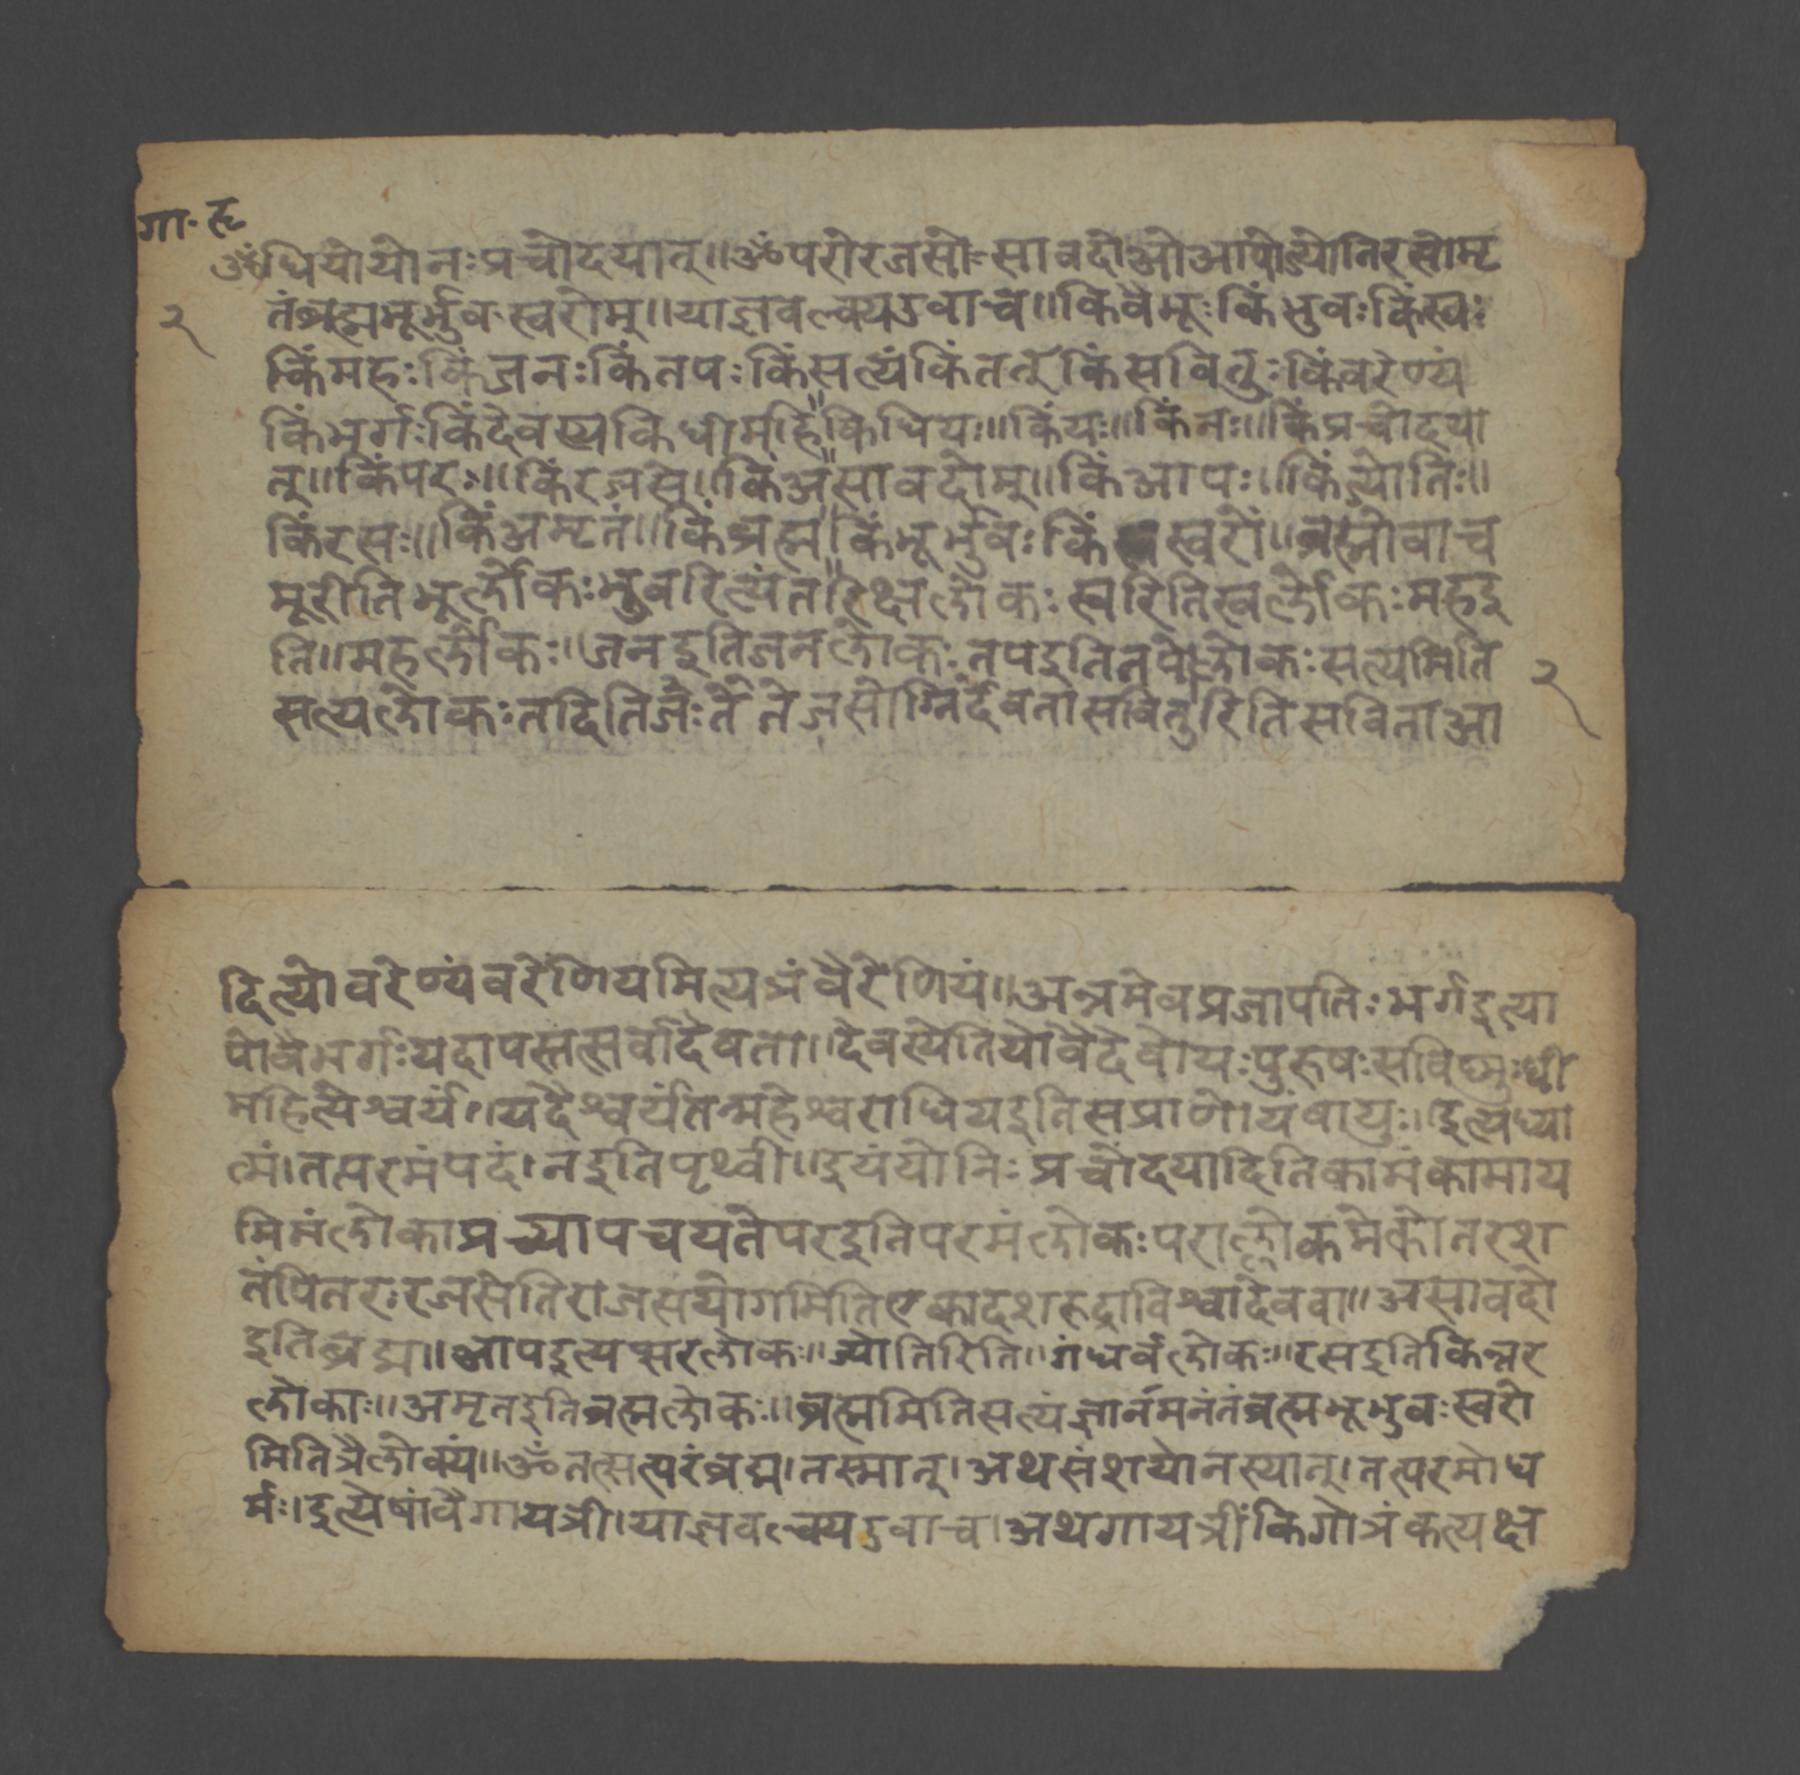 गा॰ हृ
ॐधियोयोनःप्रचोदयात्॥ॐपरोरजसोऽसावदोओआपोज्योतिरसोमृ
२ तंब्रह्मभूर्भुवःस्वरोम्॥याज्ञवल्क्यउवाच॥किंवैभूःकिंभुवःकिंस्वः
किंमहःकिंजनःकिंतपःकिंसत्यंकिंतत्किंसवितुःकिंवरेण्यं
किंभर्गःकिंदेवस्यकिंधीमहि॥किंधियः॥किंयः॥किंनः॥किंप्रचोदया
त्॥किंपरः॥किंरजसे॥किंअसावदोम्॥किंआपः॥किंज्योतिः॥
किंरसः॥किंअमृतं॥किंब्रह्म॥किंभूर्भुवःकिंस्वरों॥ब्रह्मोवाच
भूरीतिभूर्लोकःभुवरित्यंतरिक्षलोकःस्वरितिस्वर्लोकःमहइ
ति॥महर्लोकः॥जनइतिजनलोकःतपइतितपोलोकःसत्यमिति
सत्यलोकःतदितिजैःतेतेजसोग्निर्देवतासवितुरितिसविताआ २
दित्योवरेण्यंवरेणियमित्यत्रंवैरेणियं॥अन्नमेवप्रजापतिःभर्गइत्या
पोवैभर्गःयदापस्तत्सर्वादेवता॥देवस्येतियोवैदेवोयःपुरुषःसविष्णुःधी
महित्यैश्वर्यं॥यदैश्वर्यंतन्महेश्वराधियइतिसप्राणोयंवायुः॥इत्यध्या
त्मं।तत्परमंपदं।नइतिपृथ्वी॥इयंयोनिःप्रचोदयादितिकामंकामाय
मिमंलोकाप्रच्यापचयतेपरइतिपरमंलोकःपराल्लोकमेकोतरश
तंपितरःरजसेतिराजसयोगमितिएकादशरुद्राविश्वादेववा॥असावदो
इतिब्रह्म॥आपइत्यप्सरलोकः॥ज्योतिरिति॥गंधर्वलोकः॥रसइतिकिन्नर
लोकाः॥अमृतइतिब्रह्मलोकः॥ब्रह्ममितिसत्यंज्ञानमनंतंब्रह्मभूर्भुवःस्वरो
मितित्रैलोक्यं॥ॐतत्सत्परंब्रह्म।तस्मात्।अथसंशयोनस्यात्।तत्परमोध
र्मः।इत्येषांवैगायत्री।याज्ञवल्क्यउवाच।अथगायत्रींकिंगोत्रंकत्यक्ष